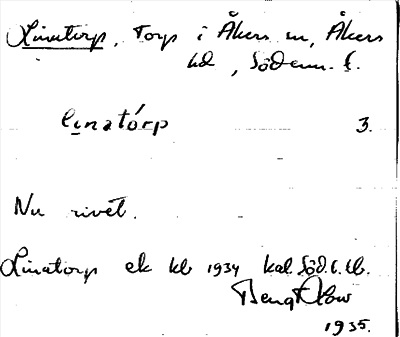 Linatorp, Torp i Åkers sn, Åkers
hd, Söderm. l.
li̱natórp 3.
Nu rivet.
Linatorp ek kb 1934 kal Söd. l. lb.
Bengt Olow
1935.